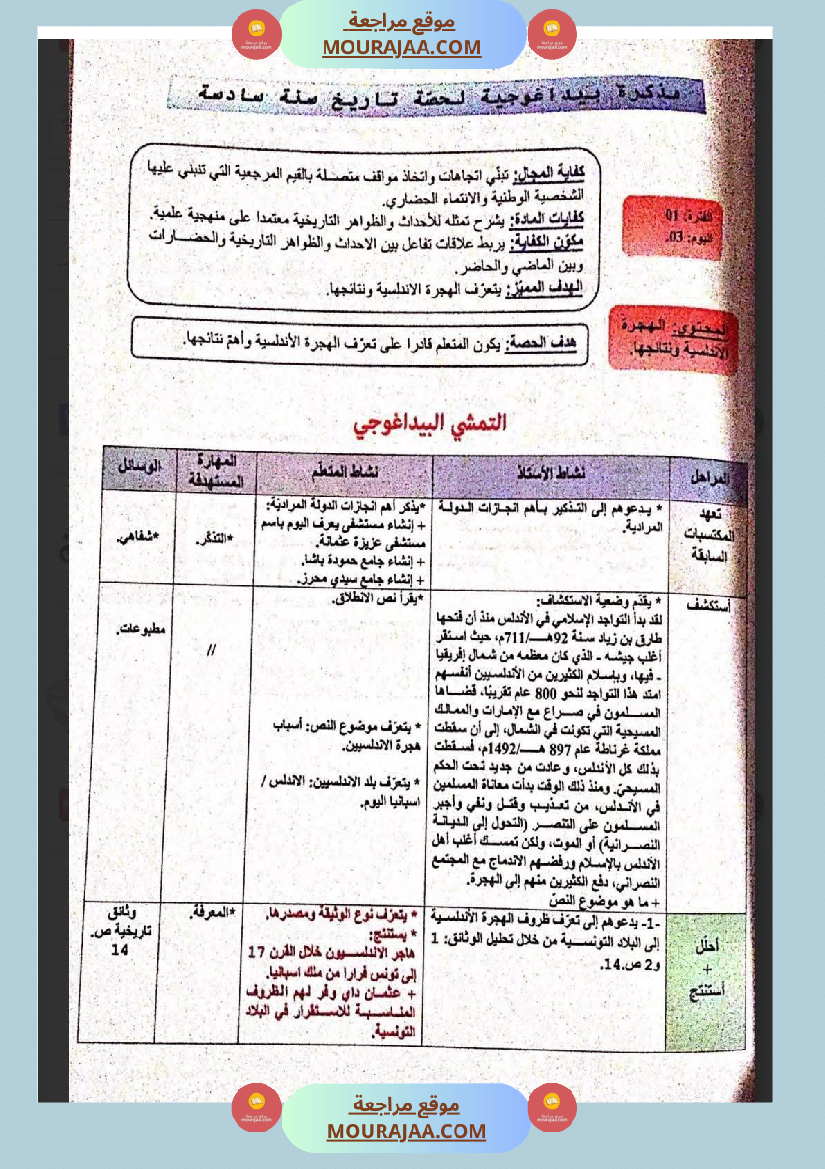 موقع مراجعة
MOURAJAA.COM
مذكرة بيداغوجية لحصّة تاريخ سنة سادسة
كفاية المجال: تبنّي اتجاهات واتخاذ مواقف متصلة بالقيم المرجعية التي تنبني عليها
الشخصية الوطنية والانتماء الحضاري.
كفايات المادة: يشرح تمثله للأحداث والظواهر التاريخية معتمدا على منهجية علمية.
مكوّن الكفاية: يربط علاقات تفاعل بين الاحداث والظواهر التاريخية والحضارات
وبين الماضي والحاضر.
الهدف المميّز: يتعرّف الهجرة الاندلسية ونتائجها.
الفترة: 01
اليوم: 03.
المحتوى: الهجرة
الأندلسية ونتائجها.
هدف الحصة: يكون المتعلم قادرا على تعرّف الهجرة الأندلسية وأهمّ نتائجها.
التمشي البيداغوجي
المراحل
نشاط الأستاذ
نشاط المتعلّم
المهارة
المستهدفة
الوسائل
تعهد
المكتسبات
السابقة
* يدعوهم إلى التذكير بأهم انجازات الدولة
المرادية.
*يذكر أهم انجازات الدولة المراديّة:
+ إنشاء مستشفى يعرف اليوم باسم
مستشفى عزيزة عثمانة.
+ إنشاء جامع حمودة باشا.
+ إنشاء جامع سيدي محرز.
*التذكّر.
*شفاهي.
أستكشف
* يقدّم وضعية الاستكشاف:
لقد بدأ التواجد الإسلامي في الأندلس منذ أن فتحها
طارق بن زياد سنة 92هـ/711م، حيث استقر
أغلب جيشه - الذي كان معظمه من شمال إفريقيا
- فيها، وبإسلام الكثيرين من الأندلسيين أنفسهم
امتد هذا التواجد لنحو 800 عام تقريبًا، قضاها
المسلمون في صراع مع الإمارات والممالك
المسيحية التي تكونت في الشمال، إلى أن سقطت
مملكة غرناطة عام 897 هـ/1492م، فسقطت
بذلك كل الأندلس، وعادت من جديد تحت الحكم
المسيحيّ. ومنذ ذلك الوقت بدأت معاناة المسلمين
في الأندلس، من تعذيب وقتل ونفي وأجبر
المسلمون على التنصر (التحول إلى الديانة
النصرانية) أو الموت، ولكن تمسك أغلب أهل
الأندلس بالإسلام ورفضهم الاندماج مع المجتمع
النصراني، دفع الكثيرين منهم إلى الهجرة.
+ ما هو موضوع النصّ
*يقرأ نص الانطلاق.
* يتعرّف موضوع النص: أسباب
هجرة الاندلسيين.
* يتعرّف بلد الاندلسيين: الاندلس /
اسبانيا اليوم.
//
مطبوعات.
أحلّل
+
أستنتج
-1- يدعوهم إلى تعرّف ظروف الهجرة الأندلسية
إلى البلاد التونسية من خلال تحليل الوثائق: 1
و2 ص.14.
* يتعرّف نوع الوثيقة ومصدرها.
* يستنتج:
هاجر الاندلسيون خلال القرن 17
إلى تونس فرارا من ملك اسبانيا.
+ عثمان داي وفر لهم الظروف
المناسبة للاستقرار في البلاد
التونسية.
*المعرفة.
وثائق
تاريخية ص.
14
موقع مراجعة
MOURAJAA.COM